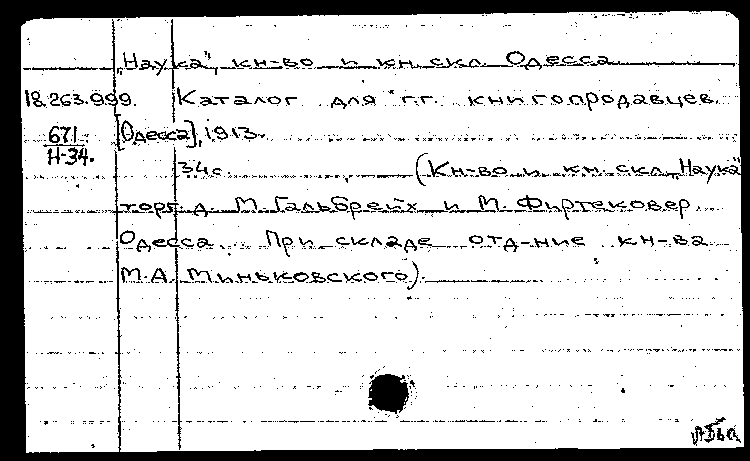 „Наука", кн-во и кн. скл. Одесса
18.263.999. Каталог для г.г. книгопродавцев.
671 [Одесса], 1913.
Н-34.
34с. (Кн-во и кн. скл. „Наука"
торг. д. М. Гальбрейх и М. Фиртековер
Одесса. При складе отд-ние кн-ва
М.А. Миньковского).